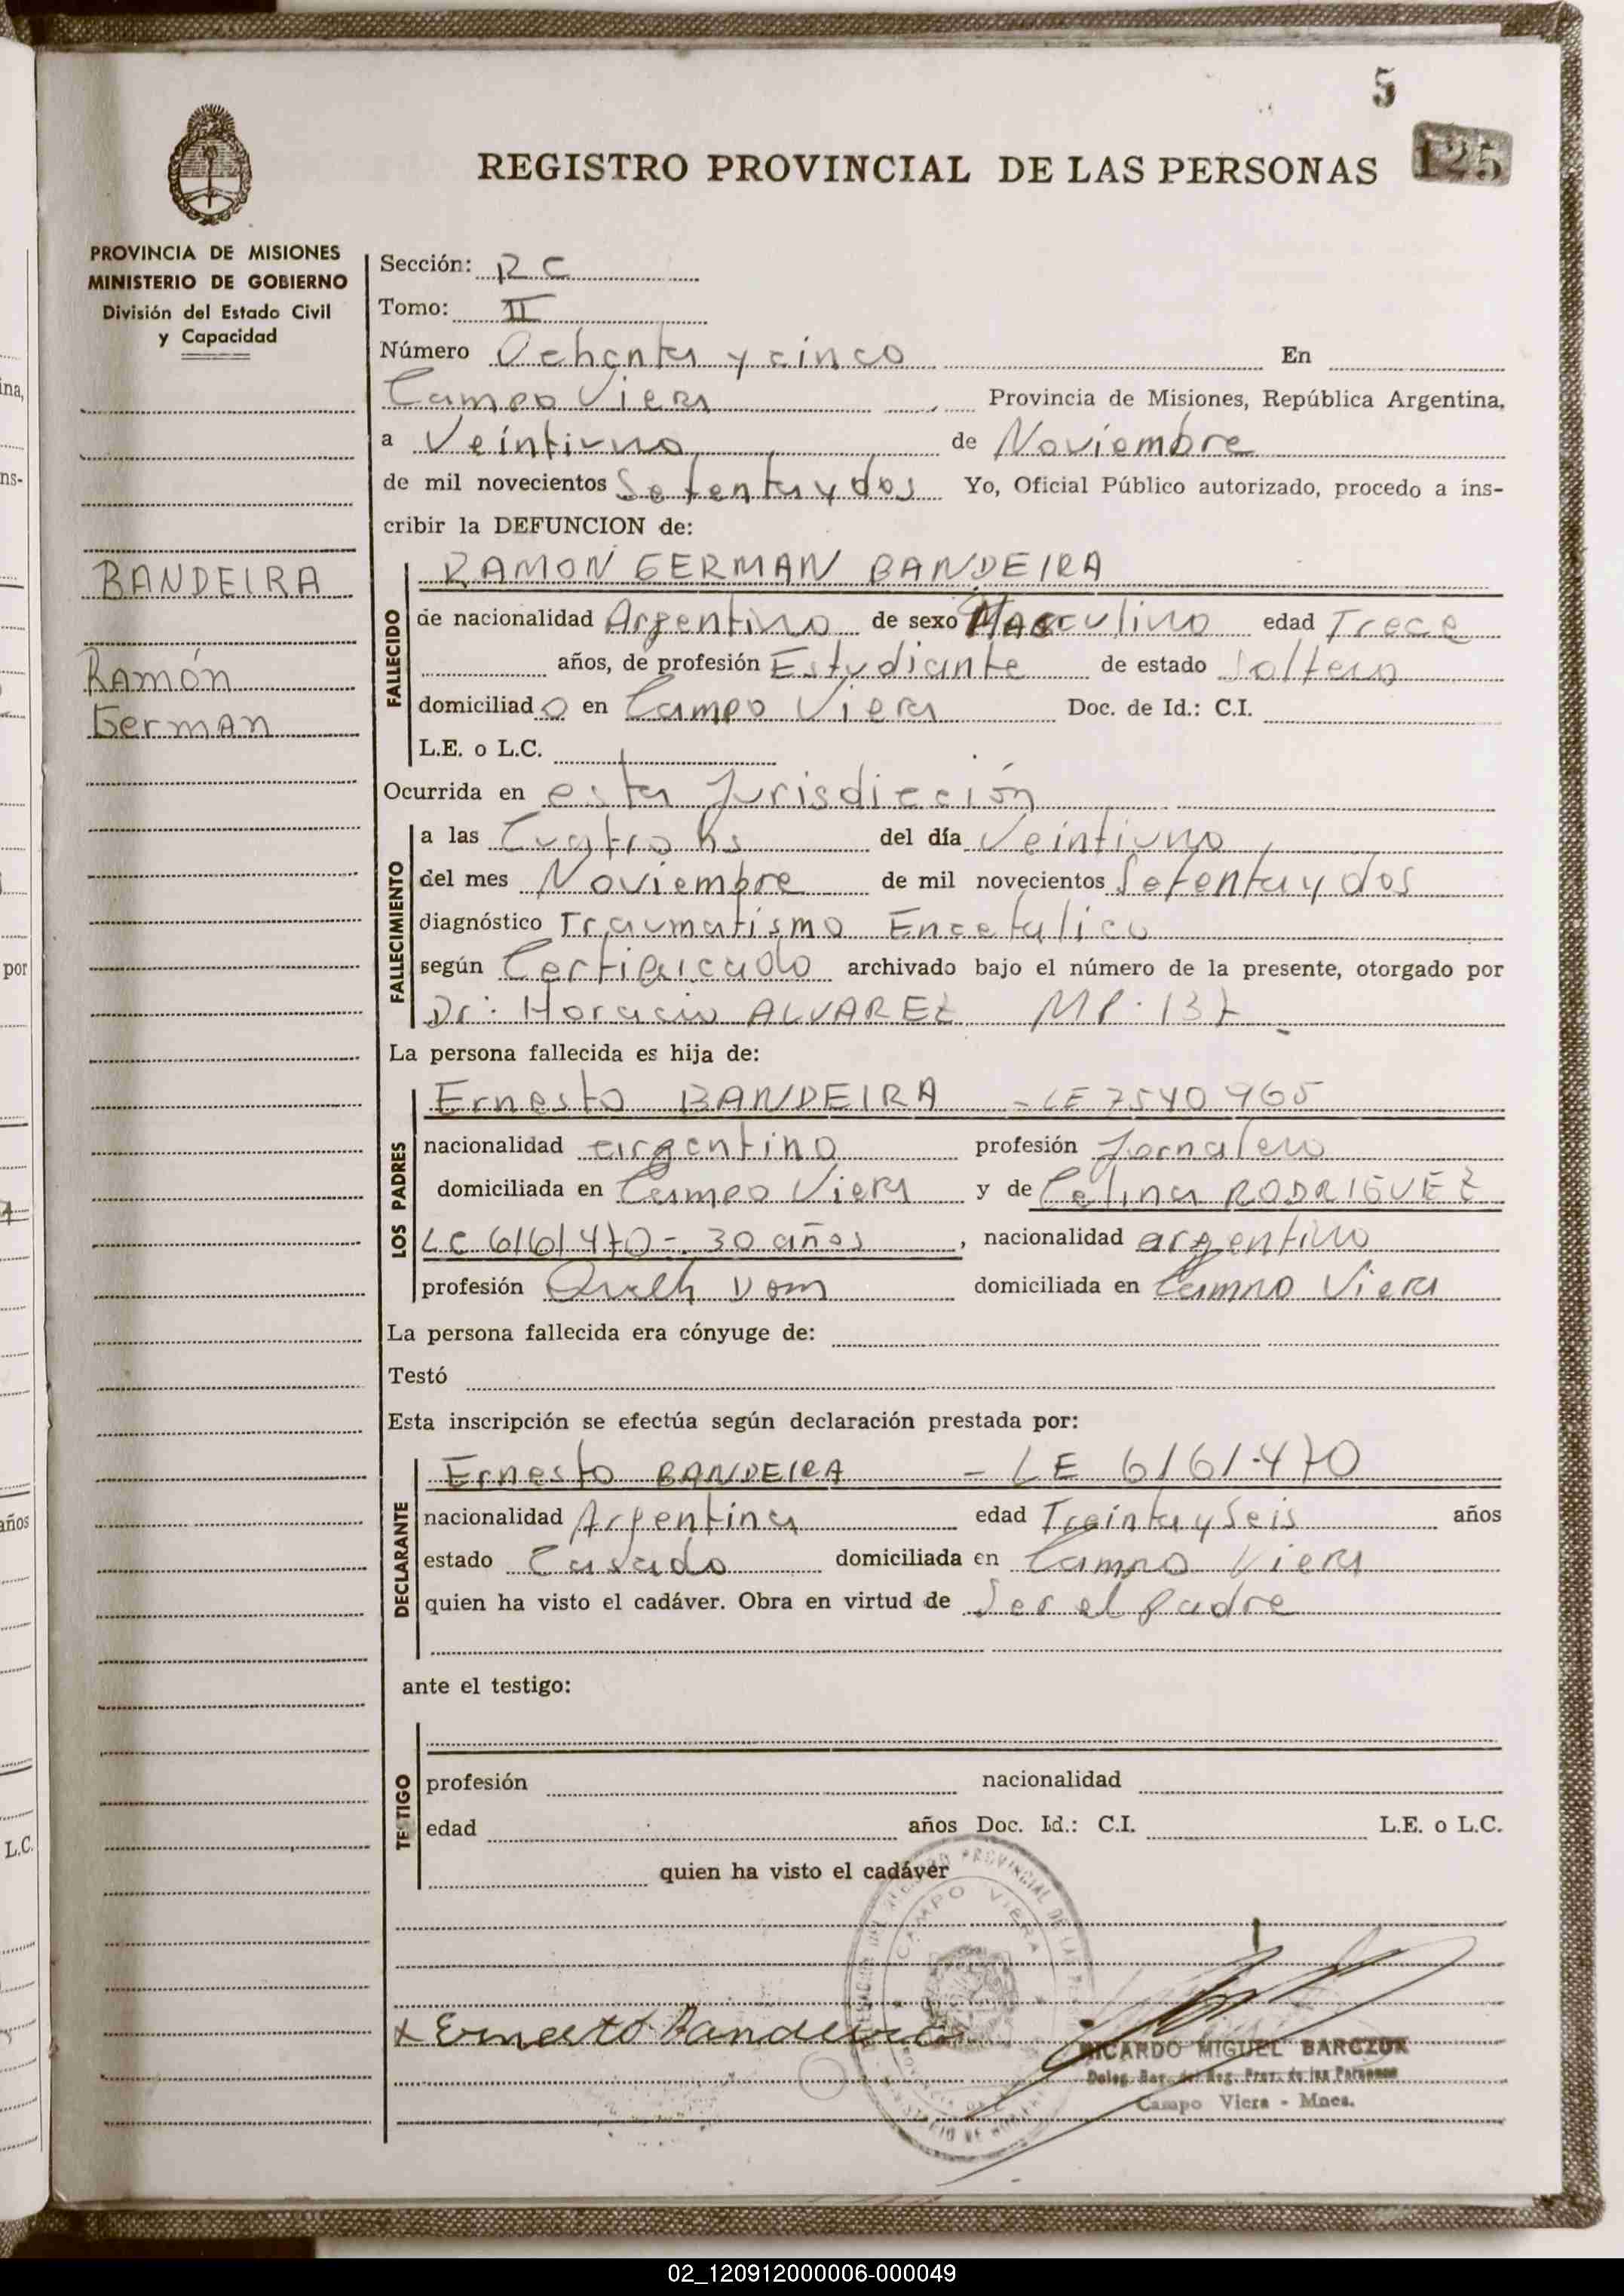 5
125
REGISTRO PROVINCIAL DE LAS PERSONAS
PROVINCIA DE MISIONES
MINISTERIO DE GOBIERNO
División del Estado Civil
y Capacidad
BANDEIRA
Ramón
German
Sección: RC
Tomo: II
Número Ochenta y cinco En
Campo Viera Provincia de Misiones, República Argentina,
a Veintiuno de Noviembre
de mil novecientos Setenta y dos Yo, Oficial Público autorizado, procedo a ins-
cribir la DEFUNCION de:
RAMON GERMAN BANDEIRA
FALLECIDO
de nacionalidad Argentino de sexo Masculino edad Trece
años, de profesión Estudiante de estado Soltero
domiciliado en Campo Viera Doc. de Id.: C.I.
L.E. o L.C.
Ocurrida en esta Jurisdicción
FALLECIMIENTO
a las Cuatro hs del día Veintiuno
del mes Noviembre de mil novecientos Setenta y dos
diagnóstico Traumatismo Encefalico
según Certificado archivado bajo el número de la presente, otorgado por
Dr: Horacio ALVAREZ MP. 137
La persona fallecida es hija de:
LOS PADRES
Ernesto BANDEIRA - LE 7540965
nacionalidad argentino profesión Jornalero
domiciliada en Campo Viera y de Celina RODRIGUEZ
LC 6161470 - 30 años, nacionalidad argentino
profesión Dom domiciliada en Campo Viera
La persona fallecida era cónyuge de:
Testó
Esta inscripción se efectúa según declaración prestada por:
DECLARANTE
Ernesto BANDEIRA - LE 6161.470
nacionalidad Argentina edad Treinta y Seis años
estado Casado domiciliada en Campo Viera
quien ha visto el cadáver. Obra en virtud de Ser el Padre
ante el testigo:
TESTIGO
profesión nacionalidad
edad años Doc. Id.: C.I. L.E. o L.C.
quien ha visto el cadáver
CAMPO VIERA
x Ernesto Bandeira
RICARDO MIGUEL BARCZUK
Deleg. Reg. del Reg. Prov. de las Personas
Campo Viera - Mnes.
ina,
ns-
por
años
L.C.
02_120912000006-000049